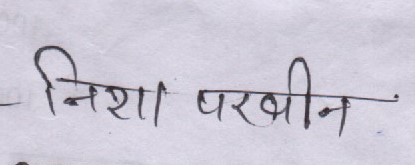 निशा परबीन